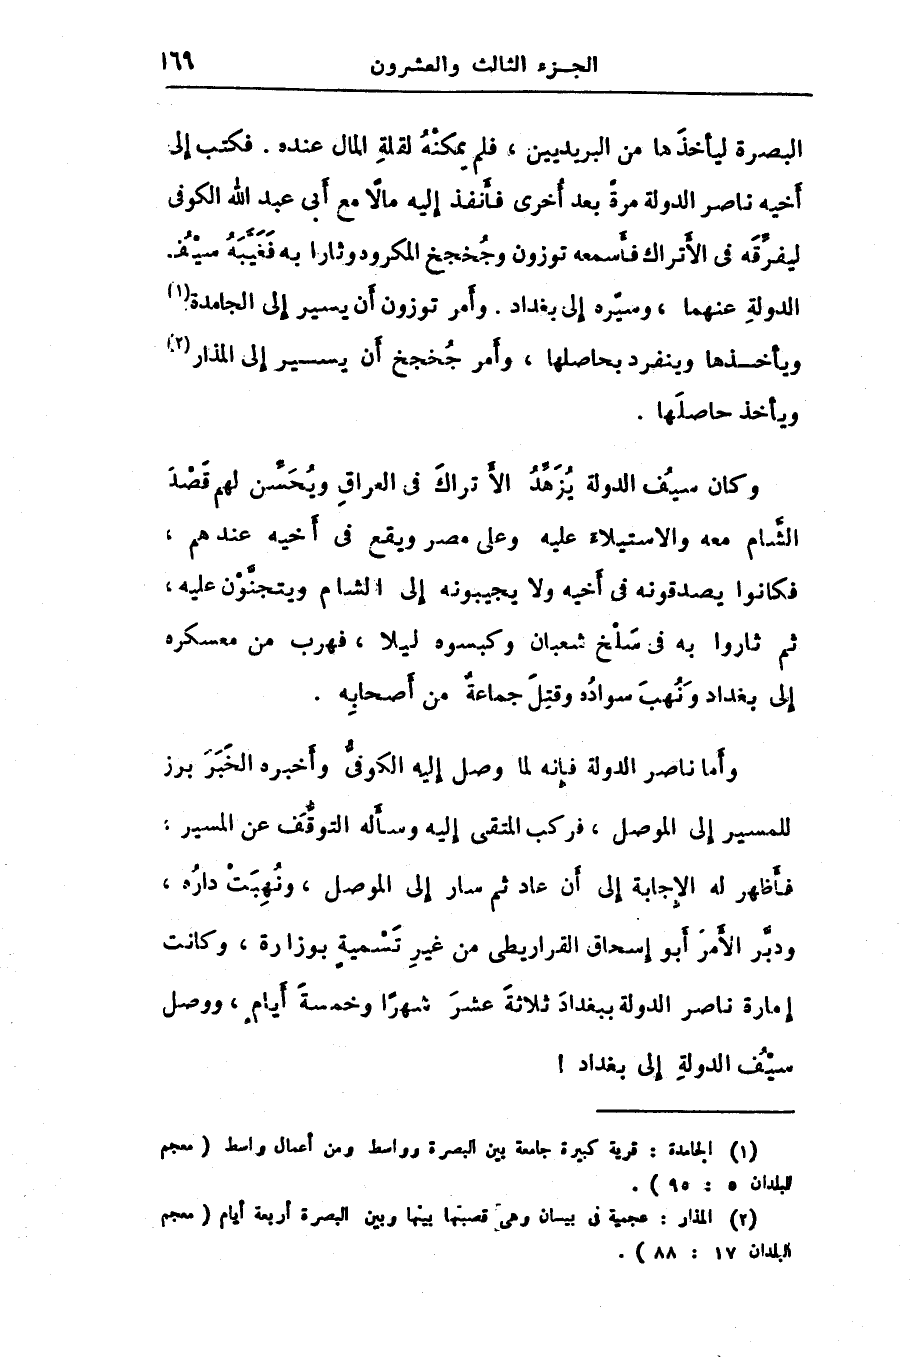 الجزء الثالث والعشرون ١٦٩
البصرة ليأخذَها من البريديين ، فلم يمكنْهُ لقلةِ المال عنده . فكتب إلى
أخيه ناصر الدولة مرةً بعد أُخرى فأَنفذ إليه مالًا مع أَبى عبد الله الكوفى
ليفرِّقَه فى الأَتراك فأَسمعه توزون وجُخجخ المكروه وثارا به فَغَيَّبَهُ سيْفُ
الدولةِ عنهما ، وسيّره إلى بغداد . وأَمر توزون أَن يسير إلى الجامدة(١)
ويأخذها وينفرد بحاصلها ، وأَمر جُخجخ أَن يسير إلى المذار(٢)
ويأخذ حاصلَها .
وكان سيفُ الدولة يُزَهِّدُ الأَتراكَ فى العراقِ ويُحَسِّن لهم قَصْدَ
الشَّام معه والاستيلاءَ عليه وعلى مصر ويقع فى أَخيه عندهم ،
فكانوا يصدقونه فى أَخيه ولا يجيبونه إلى الشام ويتجنَّوْن عليه ،
ثم ثاروا به فى سَلْخِ شعبان وكبسوه ليلا ، فهرب من معسكره
إلى بغداد ونُهبَ سوادُه وقتِلَ جماعةٌ من أَصحابِه .
وأَما ناصر الدولة فإنه لما وصل إليه الكوفىُّ وأَخبره الخَبَرَ برز
للمسير إلى الموصل ، فركب المتقى إليه وسأَله التوقُّفَ عن المسير ؛
فأَظهر له الإجابة إلى أَن عاد ثم سار إلى الموصل ، ونُهِبَتْ دارُه ،
ودبَّر الأَمرَ أَبو إسحاق القراريطى من غيرِ تَسْميةٍ بوزارة ، وكانت
إمارة ناصر الدولة ببغدادَ ثلاثةَ عشرَ شهرًا وخمسةَ أَيامٍ ، ووصل
سيْفُ الدولةِ إلى بغداد !
(١) الجامدة : قرية كبيرة جامعة بين البصرة وواسط ومن أعمال واسط ( معجم
البلدان ٥ : ٩٥ ) .
(٢) المذار : عجمية فى بيسان وهى قصبتها بينها وبين البصرة أربعة أيام ( معجم
البلدان ١٧ : ٨٨ ) .